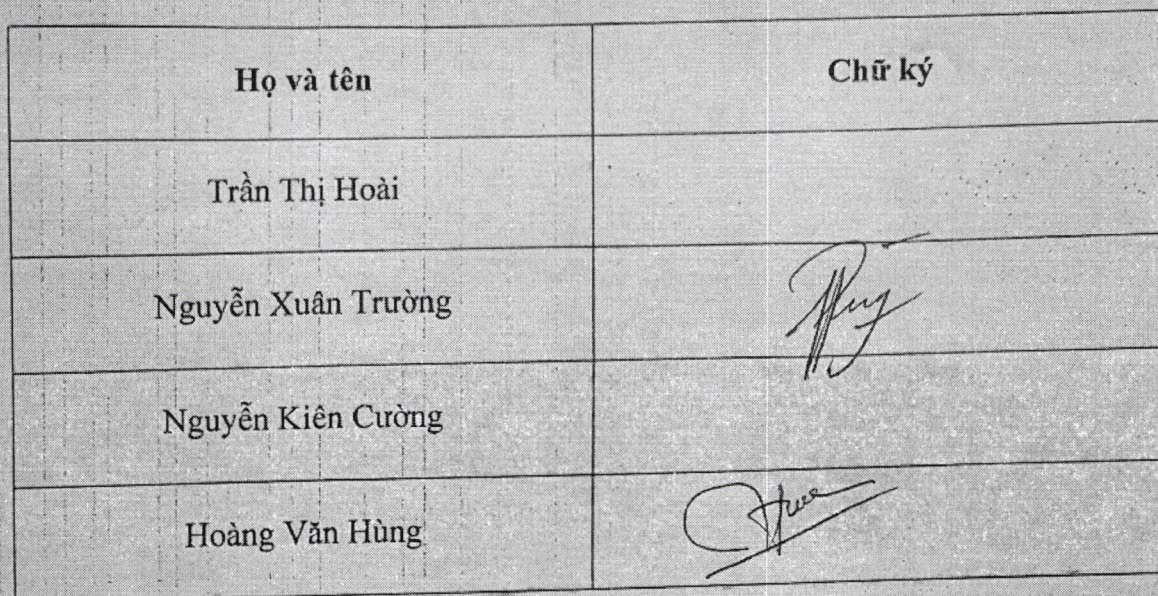 Họ và tên Chữ ký
Trần Thị Hoài
Nguyễn Xuân Trường
Nguyễn Kiên Cường
Hoàng Văn Hùng